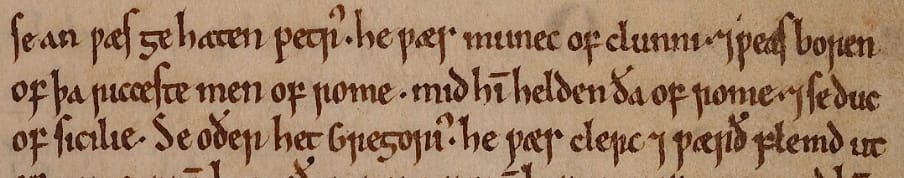 se an ƿæs ge haten petrꝰ. he ƿæs munec of clunni. ⁊ ƿeas boren
of þa ricceste men of rome. mid hī helden ða of rome. ⁊ se duc
of sicilie. Se oðer het Gregoriꝰ. he ƿæs clerc ⁊ ƿærð flemd ut